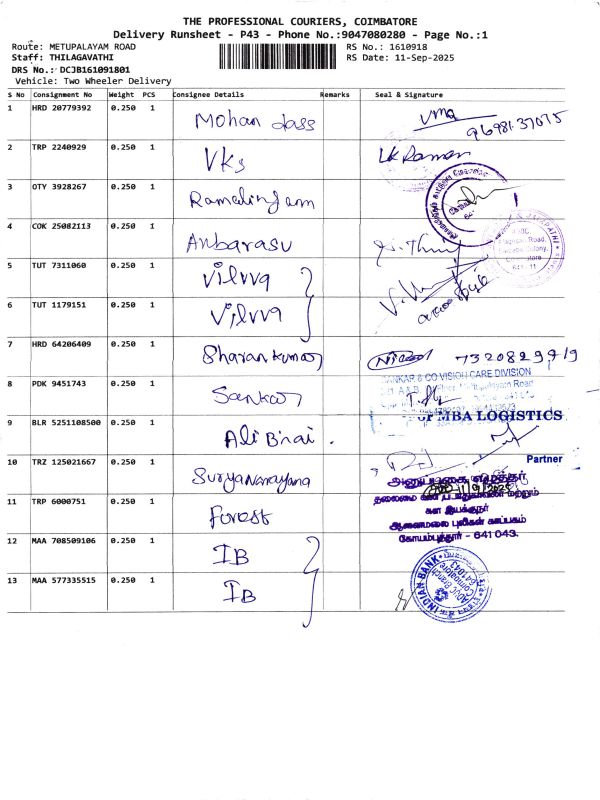 THE PROFESSIONAL COURIERS, COIMBATORE
Delivery Runsheet - P43 - Phone No.:9047080280 - Page No.:1
Route: METUPALAYAM ROAD RS No.: 1610918
Staff: THILAGAVATHI RS Date: 11-Sep-2025
DRS No.: DCJB161091801
Vehicle: Two Wheeler Delivery
S No Consignment No Weight PCS Consignee Details Remarks Seal & Signature
1 HRD 20779392 0.250 1 Mohan dass
2 TRP 2240929 0.250 1 Vks
3 OTY 3928267 0.250 1 Ramalingam
4 COK 25082113 0.250 1 Anbarasu
5 TUT 7311060 0.250 1 Vilvva
6 TUT 1179151 0.250 1 Vilvva
7 HRD 64206409 0.250 1 Sharan kumar
8 PDK 9451743 0.250 1 Sankar
SANKAR & CO VISION CARE DIVISION
9 BLR 5251108500 0.250 1 Ali Bhai.
MBA LOGISTICS
Partner
10 TRZ 125021667 0.250 1 Suryanarayana
11 TRP 6000751 0.250 1 Forest
ஆனைமலை புலிகள் காப்பகம்
கோயம்புத்தூர் - 641 043.
12 MAA 708509106 0.250 1 IB
13 MAA 577335515 0.250 1 IB
INDIAN BANK
Coimbatore
641043